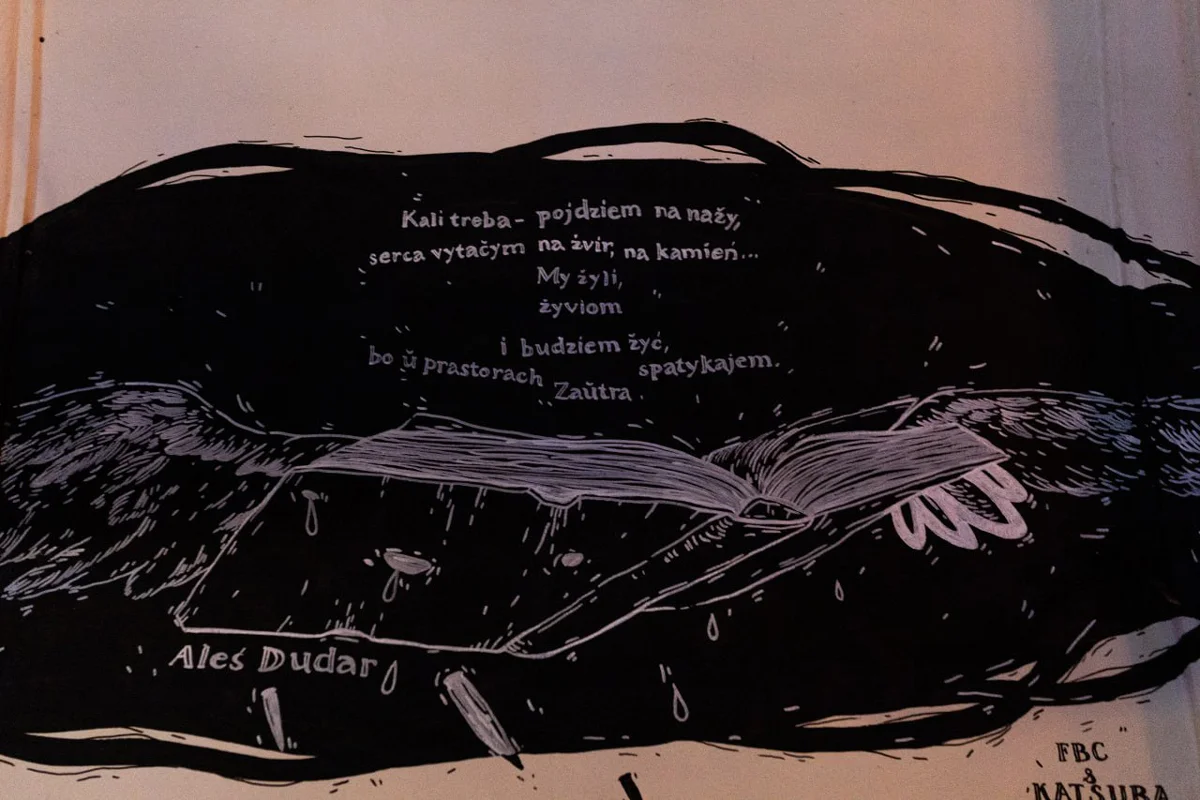 Kali treba - pojdziem na nažy,
serca vytačym na žvir, na kamień...
My žyli,
žyviom
i budziem žyć,
bo ŭ prastorach Zaŭtra spatykajem.
Aleś Dudar
FBC
&
KATSUBA